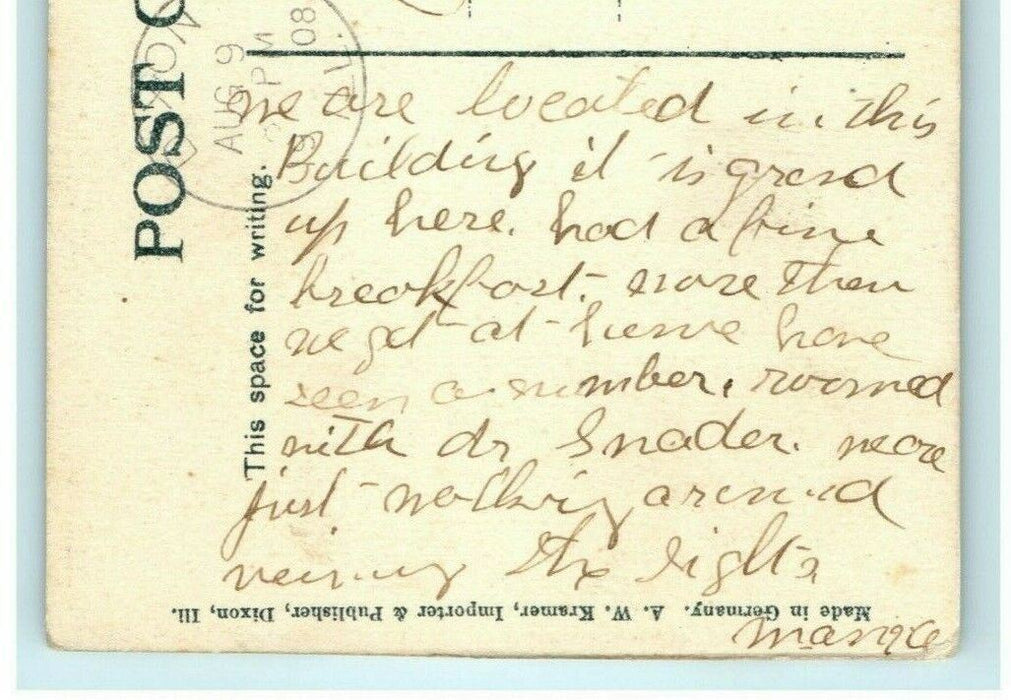 POST C
AUG 9
PM
08
ILL.
This space for writing.
we are located in this
Building it is grand
up here. had a fine
breakfast. more then
we get at home have
seen a number. roomed
with dr Snader. we are
just walking around
veiwing the sights
Made in Germany. A. W. Kramer, Importer & Publisher, Dixon, Ill.